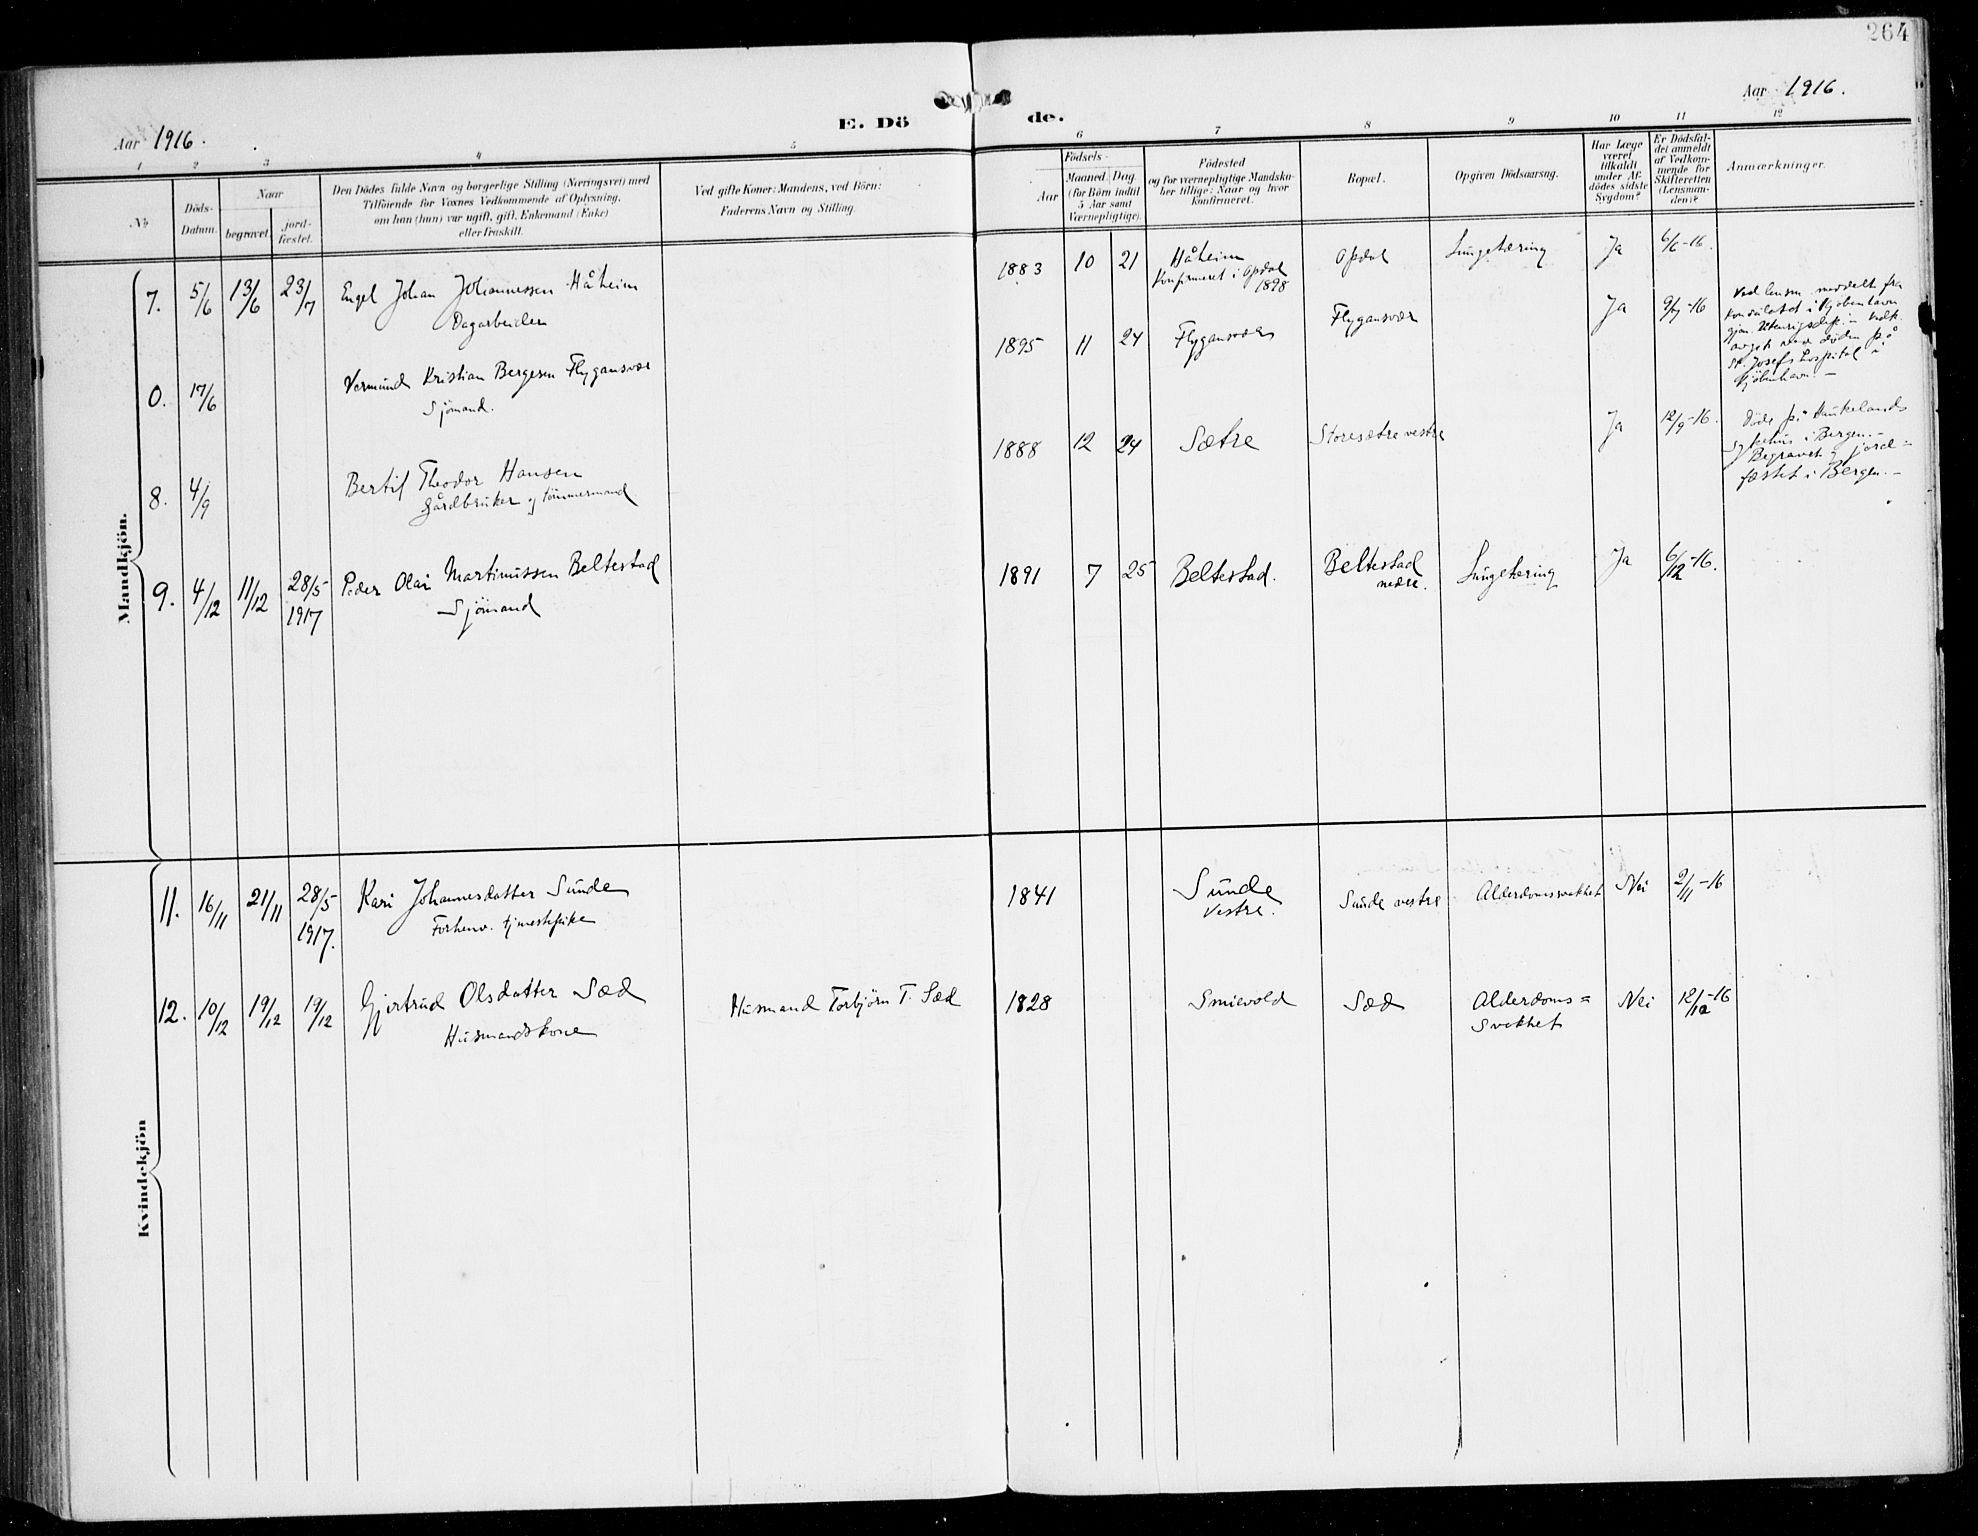 264
Aar 1916.
E. Döde.
Aar 1916.
1 2 3 4 5 6 7 8 9 10 11 12
No
Döds-
Datum.
Naar
begravet.
jord-
fæstet.
Den Dödes fulde Navn og borgerlige Stilling (Næringsvei) med
Tilföiende for Voxnes Vedkommende af Oplysning,
om han (hun) var ugift, gift, Enkemand (Enke)
eller fraskilt.
Ved gifte Koner: Mandens, ved Börn:
Faderens Navn og Stilling.
Födsels-
Aar
Maaned. Dag
(for Börn indtil
5 Aar samt
Værnepligtige).
Födested
og for værnepligtige Mandska-
ber tillige: Naar og hvor
Konfirmeret.
Bopæl.
Opgiven Dödsaarsag.
Har Læge
været
tilkaldt
under Af-
dödes sidste
Sygdom?
Er Dödsfal-
det anmeldt
af Vedkom-
mende for
Skifteretten
(Lensman-
den)?
Anmærkninger.
Mandkjön.
7. 5/6 13/6 23/7 Engel Johan Johannessen Håheim
Dagarbeider
1883 10 21 Håheim
Konfirmeret i Opdal
1898
Opdal Lungetæring Ja 6/6-16.
0. 17/6 Vermund Kristian Bergesen Flygansvær
Sjömand.
1895 11 24 Flygansvær Flygansvær Ja 9/7-16
Ved lensm. meddelt fra
Konsulatet i Kjöbenhavn
gjen. Utenrigsdep. - Vedk.
avgik ved döden på
St. Josefs Hospital i
Kjöbenhavn. -
8. 4/9 Bertil Theodor Hansen
Gårdbruker og tömmermand
1888 12 24 Sætre Storesætre vestre Ja 12/9-16.
Döde på Haukelands
Sykehus i Bergen. -
Begravet og jord=
fæstet i Bergen. -
9. 4/12 11/12 28/5
1917
Peder Olai Martinussen Beltestad
Sjömand
1891 7 25 Beltestad. Beltestad
nedre.
Lungetæring Ja 6/12-16.
Kvindekjön
11. 16/11 21/11 28/5
1917.
Kari Johannesdatter Sunde
Forhenv. tjenestepike
1841 Sunde
Vestre.
Sunde vestre Alderdomssvakhet Nei 2/11-16
12. 10/12 19/12 19/12 Gjertrud Olsdatter Sæd
Husmandskone
Husmand Torbjörn T. Sæd
1828 Smievold Sæd Alderdoms=
svakhet
Nei 12/12-16